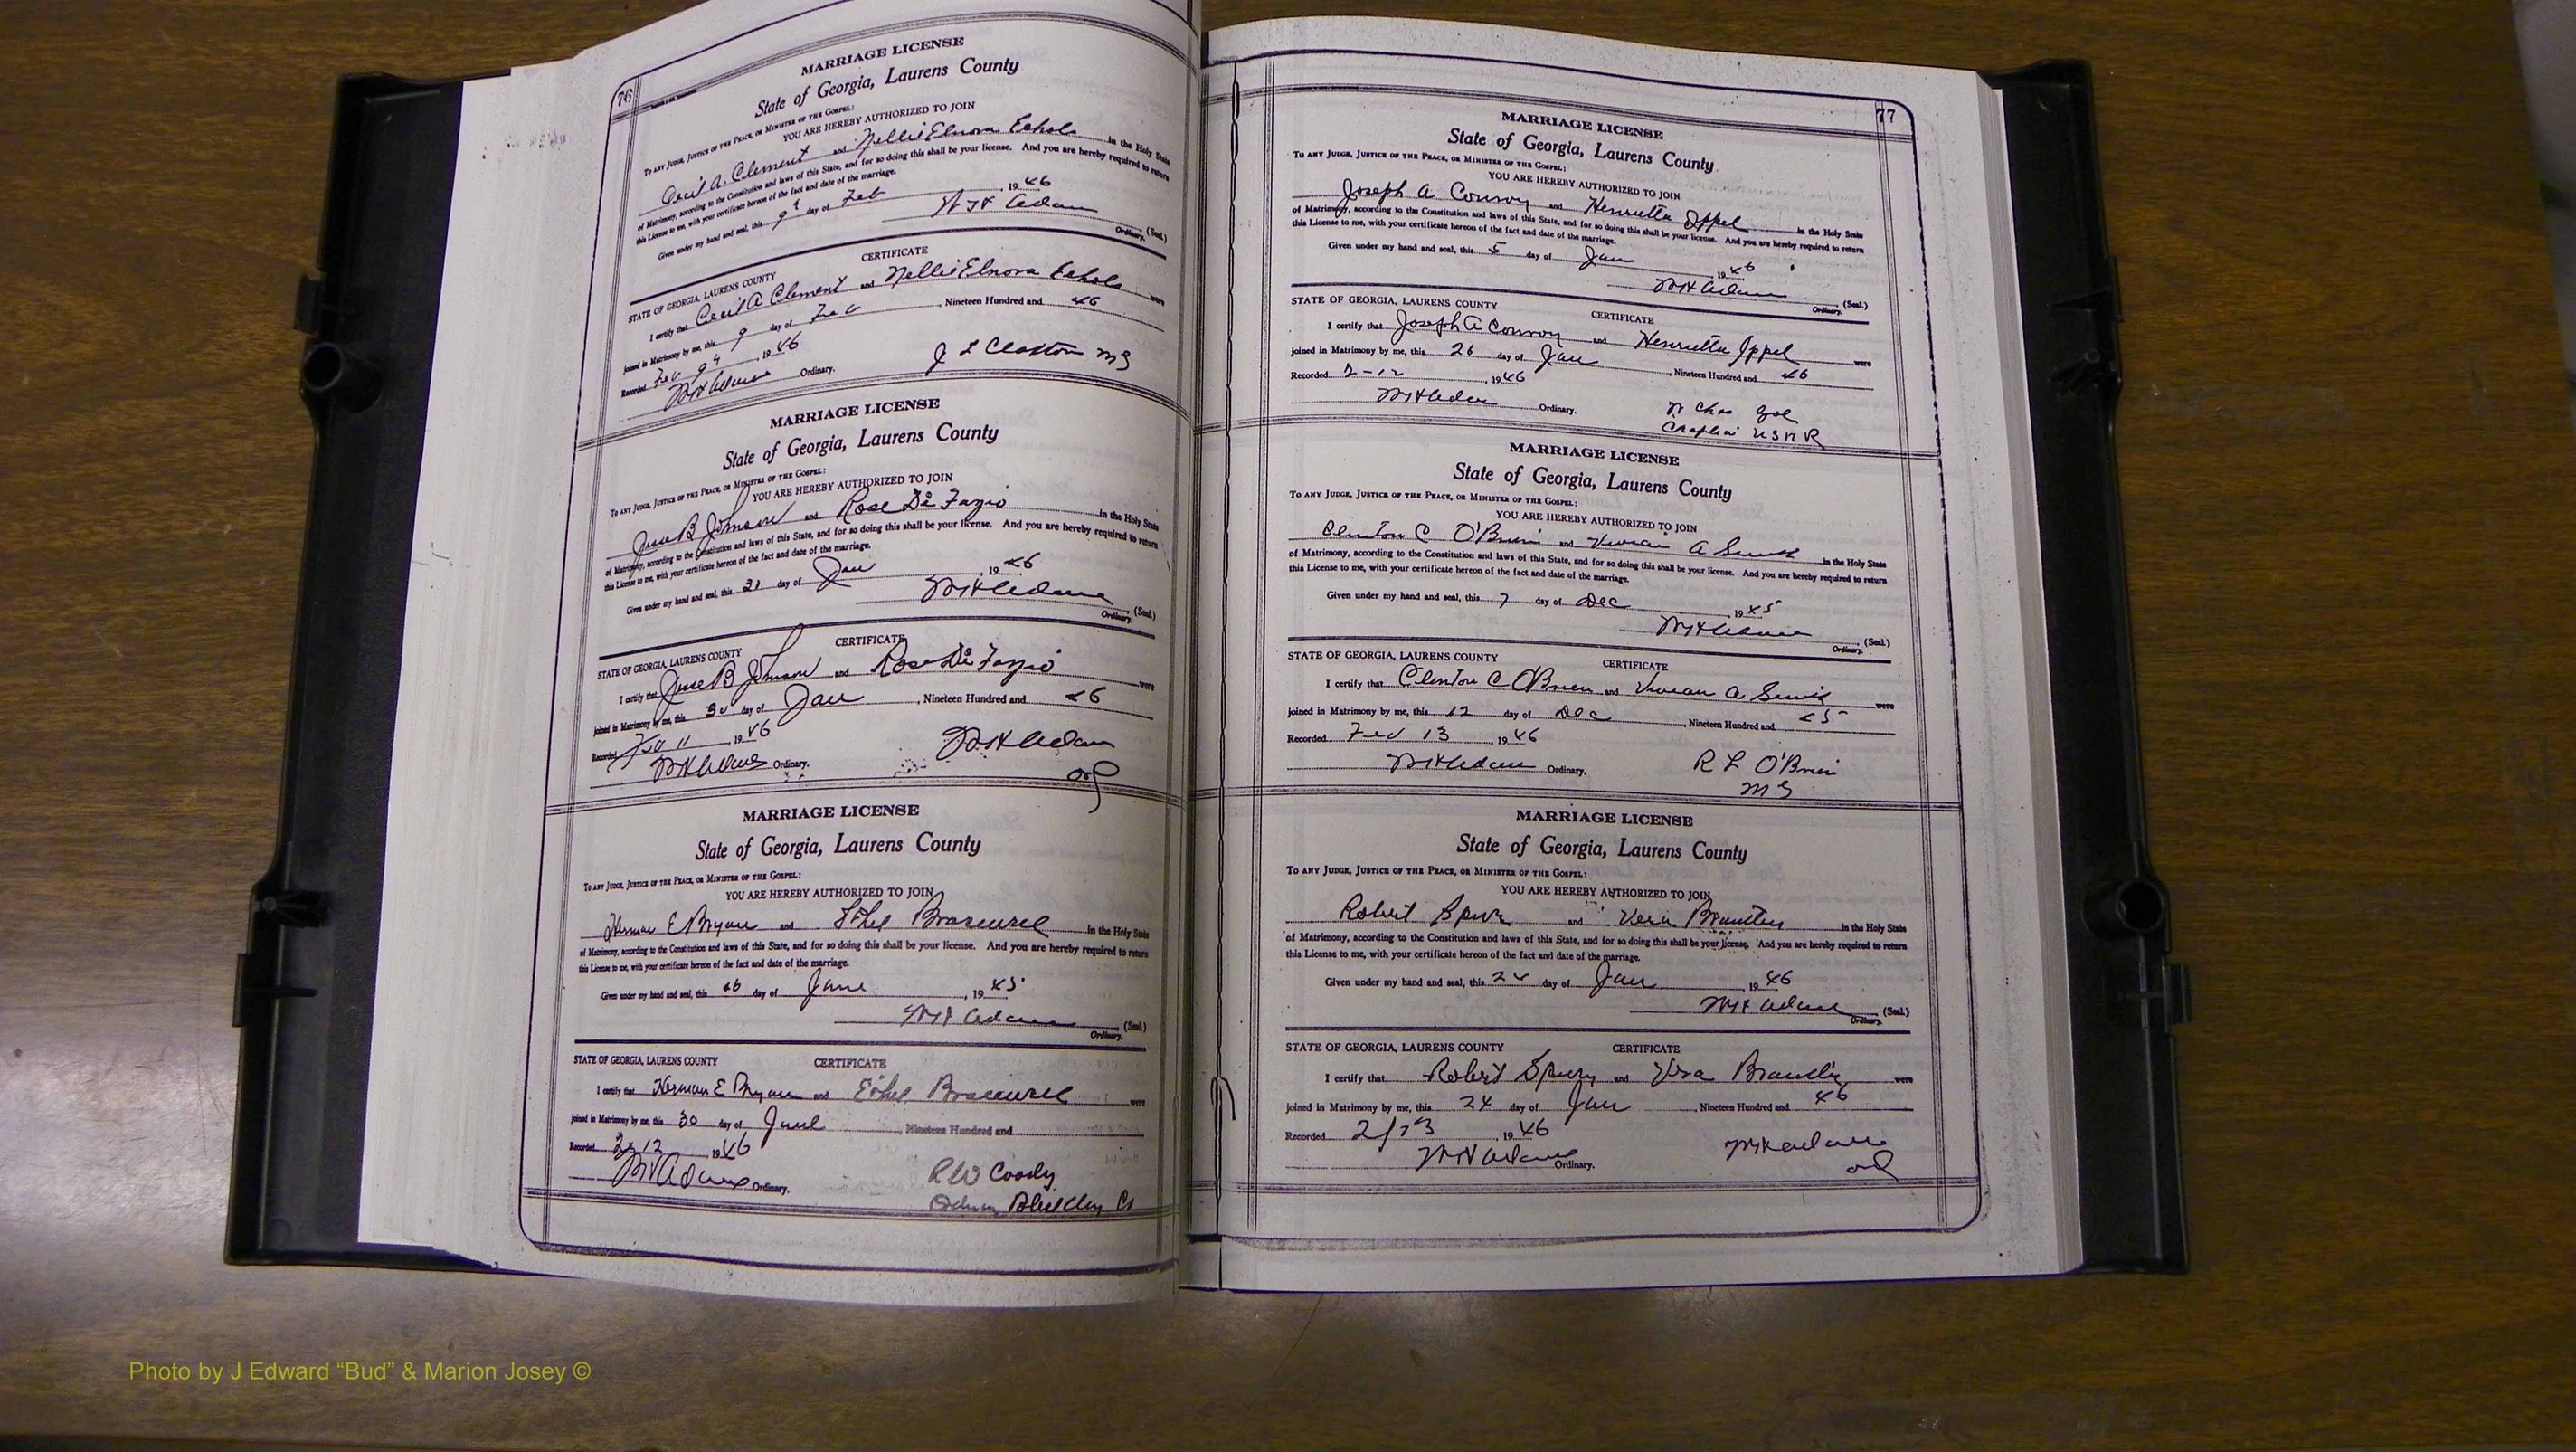 76
MARRIAGE LICENSE
State of Georgia, Laurens County
TO ANY JUDGE, JUSTICE OF THE PEACE, OR MINISTER OF THE GOSPEL:
YOU ARE HEREBY AUTHORIZED TO JOIN
Cecil A. Clement and Nellie Elnora Echols in the Holy State
of Matrimony, according to the Constitution and laws of this State, and for so doing this shall be your license. And you are hereby required to return
this License to me, with your certificate hereof of the fact and date of the marriage.
Given under my hand and seal, this 9 day of Feb, 1946
Adams (Seal)
Ordinary.
CERTIFICATE
STATE OF GEORGIA, LAURENS COUNTY
I certify that Cecil A Clement and Nellie Elnora Echols were
joined in Matrimony by me, this 9 day of Feb, Nineteen Hundred and 46
Recorded Feb 9, 1946
Adams Ordinary.
J L Claxton MG
MARRIAGE LICENSE
State of Georgia, Laurens County
TO ANY JUDGE, JUSTICE OF THE PEACE, OR MINISTER OF THE GOSPEL:
YOU ARE HEREBY AUTHORIZED TO JOIN
B Johnson and Rose De Fazio in the Holy State
of Matrimony, according to the Constitution and laws of this State, and for so doing this shall be your license. And you are hereby required to return
this License to me, with your certificate hereof of the fact and date of the marriage.
Given under my hand and seal, this day of Jan, 1946
Adams (Seal)
Ordinary.
CERTIFICATE
STATE OF GEORGIA, LAURENS COUNTY
I certify that B Johnson and Rose De Fazio were
joined in Matrimony by me, this day of Jan, Nineteen Hundred and 46
Recorded Feb 11, 1946
Adams Ordinary.
Adams
Ord
MARRIAGE LICENSE
State of Georgia, Laurens County
TO ANY JUDGE, JUSTICE OF THE PEACE, OR MINISTER OF THE GOSPEL:
YOU ARE HEREBY AUTHORIZED TO JOIN
Herman E Bryan and Ethel Bracewell in the Holy State
of Matrimony, according to the Constitution and laws of this State, and for so doing this shall be your license. And you are hereby required to return
this License to me, with your certificate hereof of the fact and date of the marriage.
Given under my hand and seal, this day of June, 1945
Adams (Seal)
Ordinary.
STATE OF GEORGIA, LAURENS COUNTY CERTIFICATE
I certify that Herman E Bryan and Ethel Bracewell were
joined in Matrimony by me, this 30 day of June, Nineteen Hundred and
Recorded 2-12, 1946
Adams Ordinary.
RW Coody
Bleckley Co
77
MARRIAGE LICENSE
State of Georgia, Laurens County
TO ANY JUDGE, JUSTICE OF THE PEACE, OR MINISTER OF THE GOSPEL:
YOU ARE HEREBY AUTHORIZED TO JOIN
Joseph A Conroy and Henrietta Ippel in the Holy State
of Matrimony, according to the Constitution and laws of this State, and for so doing this shall be your license. And you are hereby required to return
this License to me, with your certificate hereof of the fact and date of the marriage.
Given under my hand and seal, this 5 day of Jan 1946
Adams (Seal)
Ordinary.
STATE OF GEORGIA, LAURENS COUNTY CERTIFICATE
I certify that Joseph A Conroy and Henrietta Ippel were
joined in Matrimony by me, this 26 day of Jan, Nineteen Hundred and 46
Recorded 2-12, 1946
Adams Ordinary.
Chas
Chaplin USNR
MARRIAGE LICENSE
State of Georgia, Laurens County
TO ANY JUDGE, JUSTICE OF THE PEACE, OR MINISTER OF THE GOSPEL:
YOU ARE HEREBY AUTHORIZED TO JOIN
Clinton C O'Brien and Vivian A in the Holy State
of Matrimony, according to the Constitution and laws of this State, and for so doing this shall be your license. And you are hereby required to return
this License to me, with your certificate hereof of the fact and date of the marriage.
Given under my hand and seal, this 7 day of Dec, 1945
Adams (Seal)
Ordinary.
STATE OF GEORGIA, LAURENS COUNTY CERTIFICATE
I certify that Clinton C O'Brien and Vivian A were
joined in Matrimony by me, this 12 day of Dec, Nineteen Hundred and 45
Recorded Feb 13, 1946
Adams Ordinary.
R L O'Brien
MG
MARRIAGE LICENSE
State of Georgia, Laurens County
TO ANY JUDGE, JUSTICE OF THE PEACE, OR MINISTER OF THE GOSPEL:
YOU ARE HEREBY AUTHORIZED TO JOIN
Robert Spivy and Vera Brantley in the Holy State
of Matrimony, according to the Constitution and laws of this State, and for so doing this shall be your license. And you are hereby required to return
this License to me, with your certificate hereof of the fact and date of the marriage.
Given under my hand and seal, this 24 day of Jan, 1946
Adams (Seal)
Ordinary.
STATE OF GEORGIA, LAURENS COUNTY CERTIFICATE
I certify that Robert Spivy and Vera Brantley were
joined in Matrimony by me, this 24 day of Jan, Nineteen Hundred and 46
Recorded 2/13, 1946
Adams Ordinary.
Adams
Ord
Photo by J Edward “Bud” & Marion Josey ©